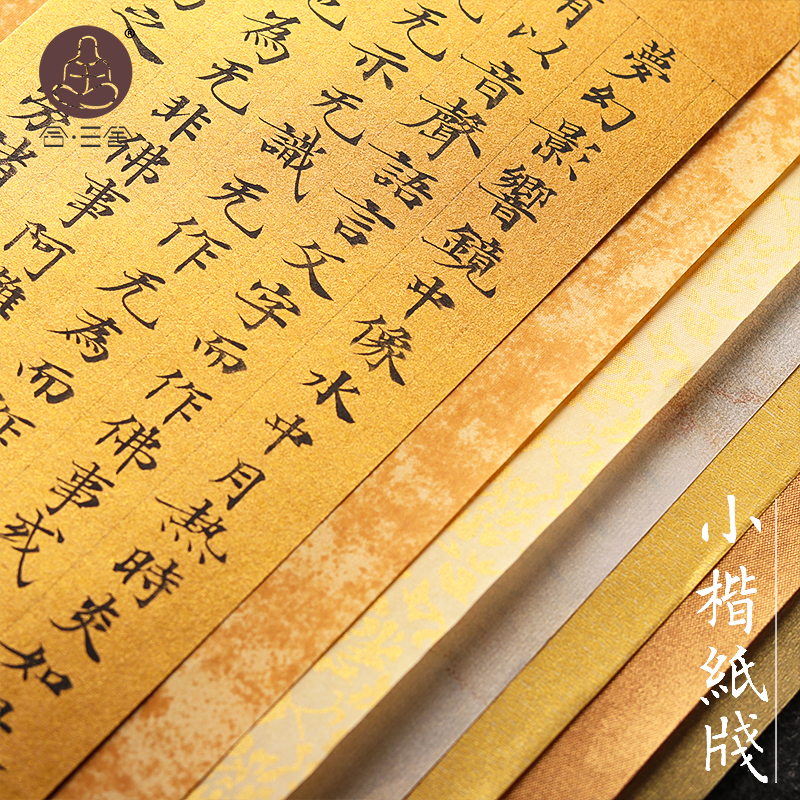 夢幻影響鏡中像水中月熱時炎如
有以音聲語言文字而作佛事或
无示无識无作无為而作
為无非佛事阿難
之
諸
合·三舍
小楷紙牋